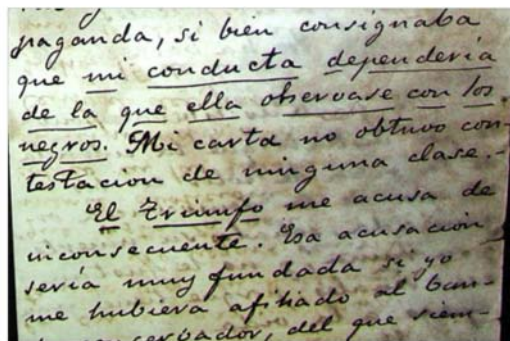 paganda, si bien consignaba
que mi conducta dependería
de la que ella observase con los
negros. Mi carta no obtuvo con-
testacion de ninguna clase.-
El Triunfo me acusa de
inconsecuente. Esa acusación
sería muy fundada si yo
me hubiera afiliado al ban-
servador, del que siem-